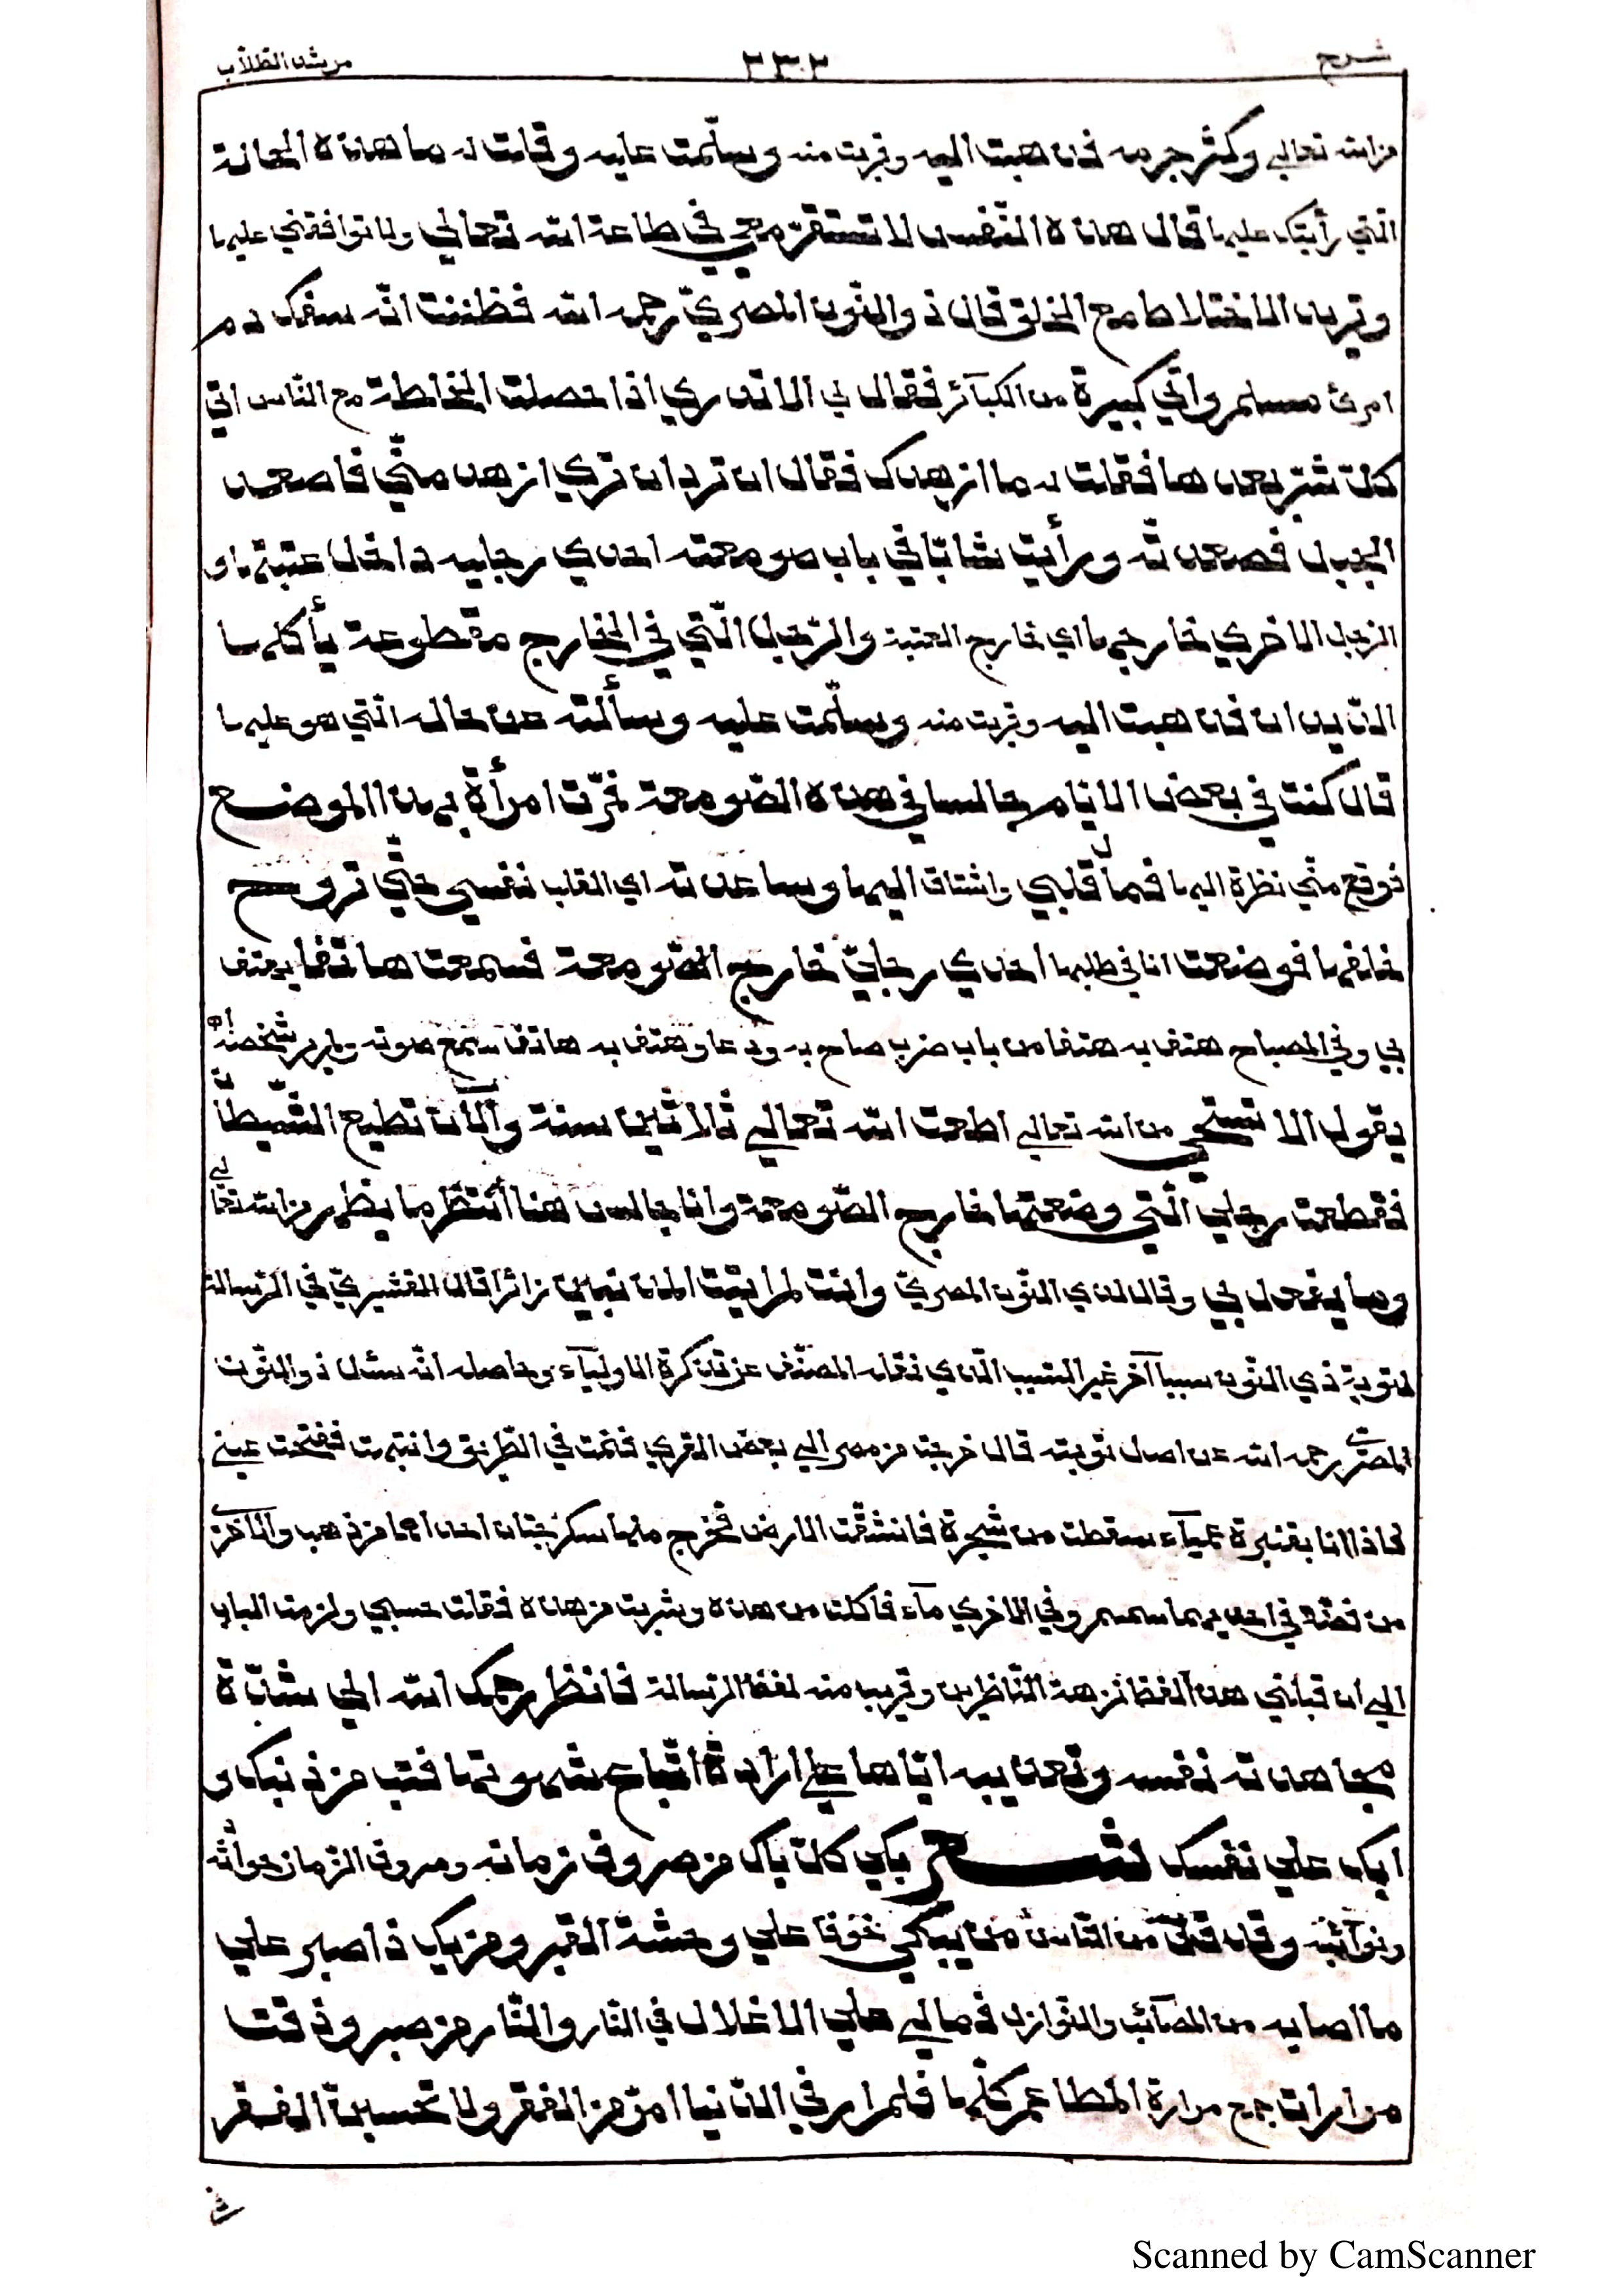 شرح ٣٣٢ مرشد الطلاب
من الله تعالى وكثر جرمه فذهبت اليه وقربت منه وسلّمت عليه وقلت له ما هذه الحالة
الّتي رأيتك عليها قال هذه النّفس لا تستقرّ معي في طاعة الله تعالى ولا توافقني عليها
وتريد الاختلاط مع الخلق قال ذو النّون المصريّ رحمه الله فظننت انّه سفك دم
امرئ مسلم واتى كبيرة من الكبآئر فقال لي الا تدري اذا حصلت المخالطة مع النّاس اتى
كلّ شرّ بعدها فقلت له ما ازهدك فقال ان ترد ان ترى ازهد منّي فاصعد
الجبل فصعدته ورأيت شابّا في باب صومعته احدى رجليه داخل عتبتها و
الرّجل الاخرى خارجها اي خارج العتبة والرّجل الّتي في الخارج مقطوعة يأكلها
الدّيدان فذهبت اليه وقربت منه وسلّمت عليه وسألته عن حاله الّتي هو عليها
قال كنت في بعض الايّام جالسا في هذه الصّومعة فمرّت امرأة بهذا الموضع
فوقع منّي نظرة اليها فمال قلبي واشتاق اليها وساعدته اي القلب نفسي حتّى تروح
خلفها فوضعت انا في طلبها احدى رجليّ خارج الصّومعة فسمعت هاتفا يهتف
بي وفي المصباح هتف به هتفا من باب ضرب صاح به ودعا وهتف به هاتف سمع صوته ولم ير شخصه اه
يقول الا تستحي من الله تعالى اطعت الله تعالى ثلاثين سنة والآن تطيع الشّيطان
فقطعت رجلي الّتي وضعتها خارج الصّومعة وانا جالس هنا أنتظر ما يظهر من الله تعالى
وما يفعل بي وقال لذي النّون المصريّ وانت لم اتيت المذنبين زائرا قال القشيريّ في الرّسالة
لتوبة ذي النّون سببا آخر غير السّبب الّذي نقله المصنّف عن تذكرة الاوليآء وحاصله انّه سئل ذو النّون
المصريّ رحمه الله عن اصل توبته قال خرجت من مصر الى بعض القرى فنمت في الطّريق وانتبهت ففتحت عيني
فاذا انا بقنبرة عميآء سقطت من شجرة فانشقّت الارض فخرج منها سكرّجتان احداهما من ذهب والاخرى
من فضّة في احديهما سمسم وفي الاخرى مآء فاكلت من هذه وشربت من هذه فقلت حسبي ولزمت الباب
الى ان قبلني هذا لفظ نزهة النّاظرين وقريب منه لفظ الرّسالة فانظر رحمك الله الى شدّة
مجاهدته نفسه وتعذيبه ايّاها على ارادة اتّباع شهوتها فتب من ذنبك و
ابك على نفسك شعر بكى كلّ باك من صروف زمانه وصروف الزّمان حوادثه
ونوآئبه وقد قلّ من النّاس من يبكي خوفا على وحشة القبر ومن يك ذا صبر على
ما اصابه من المصآئب والنّوازل فما لي على الاغلال في النّار والنّار من صبر وذقت
مرارات جمع مرارة المطاعم كلّها فلم ار في الدّنيا امرّ من الفقر ولا تحسبنّ الفقر
Scanned by CamScanner